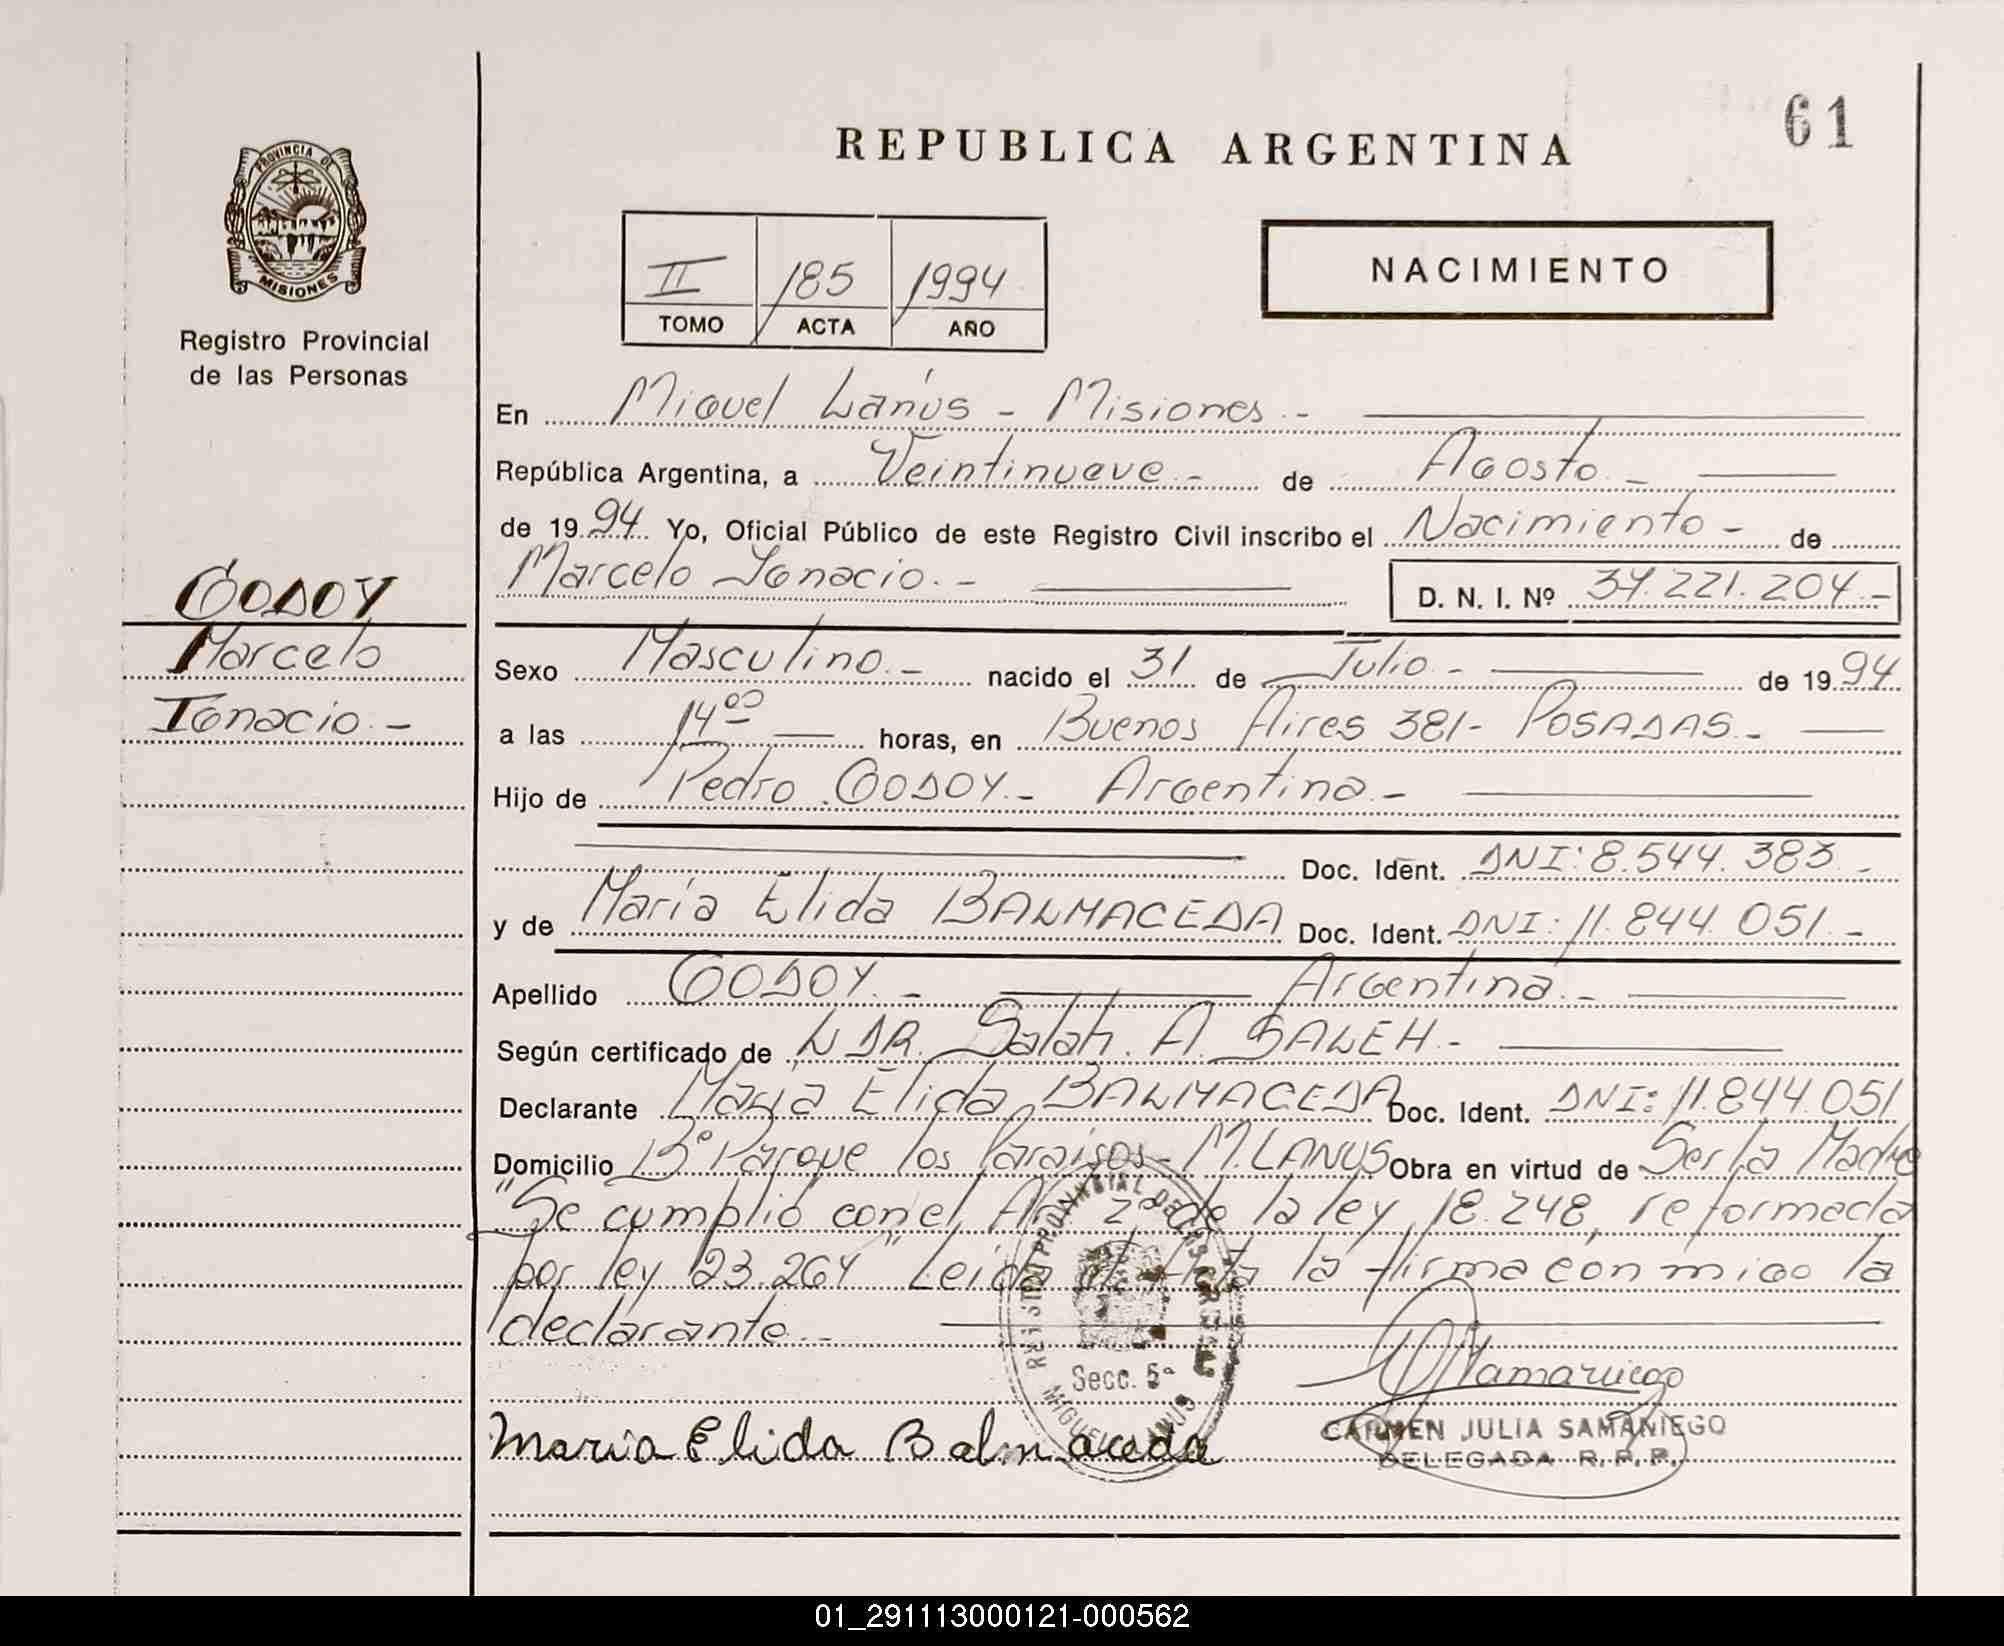 61
REPUBLICA ARGENTINA
PROVINCIA DE
MISIONES
Registro Provincial
de las Personas
II 185 1994
TOMO ACTA AÑO
NACIMIENTO
En Miguel Lanús - Misiones.-
República Argentina, a Veintinueve.- de Agosto.-
de 1994. Yo, Oficial Público de este Registro Civil inscribo el Nacimiento - de
Marcelo Ignacio.- D. N. I. Nº 34.221.204.-
GODOY
Marcelo
Ignacio.-
Sexo Masculino.- nacido el 31 de Julio.- de 1994
a las 14⁰⁰ horas, en Buenos Aires 381- POSADAS.-
Hijo de Pedro GODOY.- Argentina.-
Doc. Ident. DNI: 8.544.383.-
y de María Elida BALMACEDA Doc. Ident. DNI: 11.844.051.-
Apellido GODOY.- Argentina.-
Según certificado de DR. Salah. A. SALEH.-
Declarante María Elida BALMACEDA Doc. Ident. DNI: 11.844.051
Domicilio Bº Parque los Paraisos- M. LANUS Obra en virtud de Ser la Madre
"Se cumplió con el Art 2º de la ley 18.248, reformada
por ley 23.264" Leida el Acta la firma conmigo la
declarante.-
REGISTRO PROVINCIAL DE LAS PERSONAS
Secc. 5ª
MIGUEL LANUS
Maria Elida Balmaceda
CSamaniego
CARMEN JULIA SAMANIEGO
DELEGADA R. P. P.
01_291113000121-000562